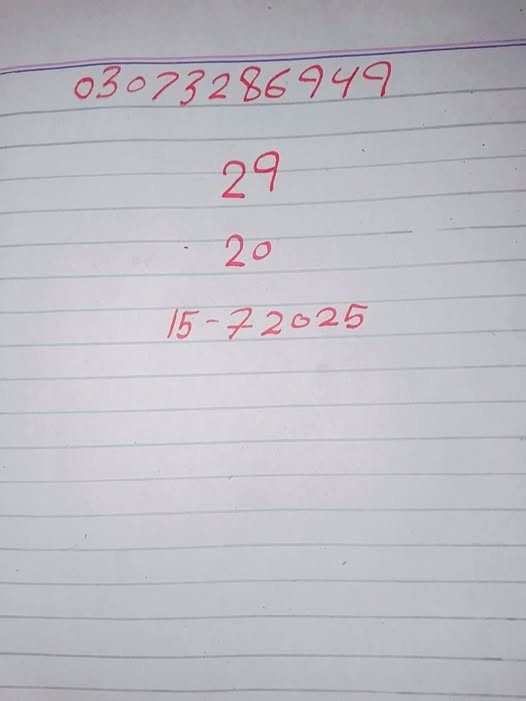 03073286949
29
20
15-72025